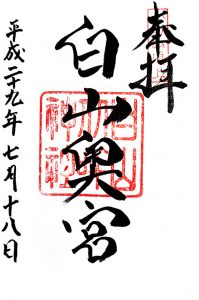 奉拝
白山奥宮
平成二十九年七月十八日